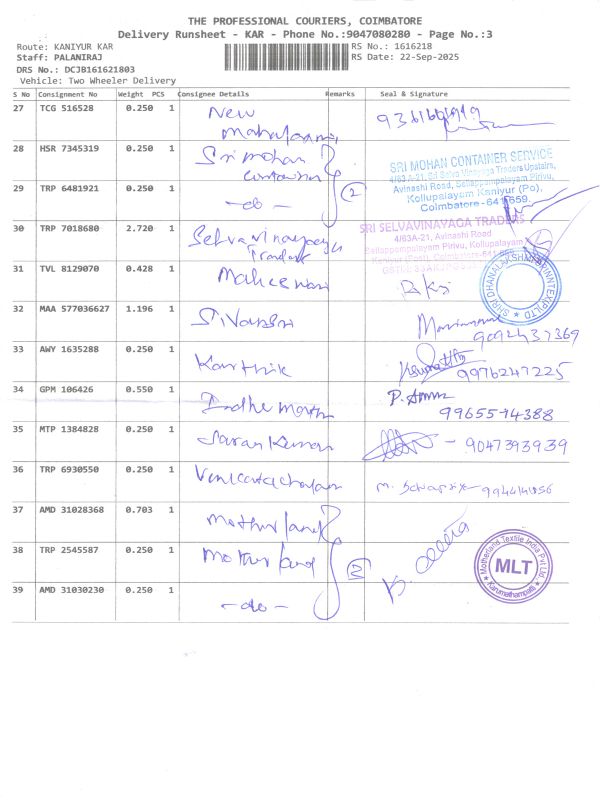 THE PROFESSIONAL COURIERS, COIMBATORE
Delivery Runsheet - KAR - Phone No.:9047080280 - Page No.:3
Route: KANIYUR KAR
RS No.: 1616218
Staff: PALANIRAJ
RS Date: 22-Sep-2025
DRS No.: DCJB161621803
Vehicle: Two Wheeler Delivery
S No Consignment No Weight PCS Consignee Details Remarks Seal & Signature
27 TCG 516528 0.250 1 New
28 HSR 7345319 0.250 1 Sri mohan
container
SRI MOHAN CONTAINER SERVICE
4/63 A-21, Sri Selva Vinayaga Traders Upstairs,
Avinashi Road, Sellappampalayam Pirivu,
Kollupalayam Kaniyur (Po),
Coimbatore - 641 659.
29 TRP 6481921 0.250 1 -do- 2
30 TRP 7018680 2.720 1 Selvavinayaga
Traders
SRI SELVAVINAYAGA TRADERS
4/63A-21, Avinashi Road
Sellappampalayam Pirivu, Kollupalayam
31 TVL 8129070 0.428 1
32 MAA 577036627 1.196 1
9092437369
33 AWY 1635288 0.250 1 Karthik
9976247225
34 GPM 106426 0.550 1
9965574388
35 MTP 1384828 0.250 1 Saran Kumar
- 9047393939
36 TRP 6930550 0.250 1 Venkatachalam
37 AMD 31028368 0.703 1 Motherland
38 TRP 2545587 0.250 1 Motherland
Motherland Textile India Pvt Ltd.
MLT
Karumathampatti
39 AMD 31030230 0.250 1 -do-